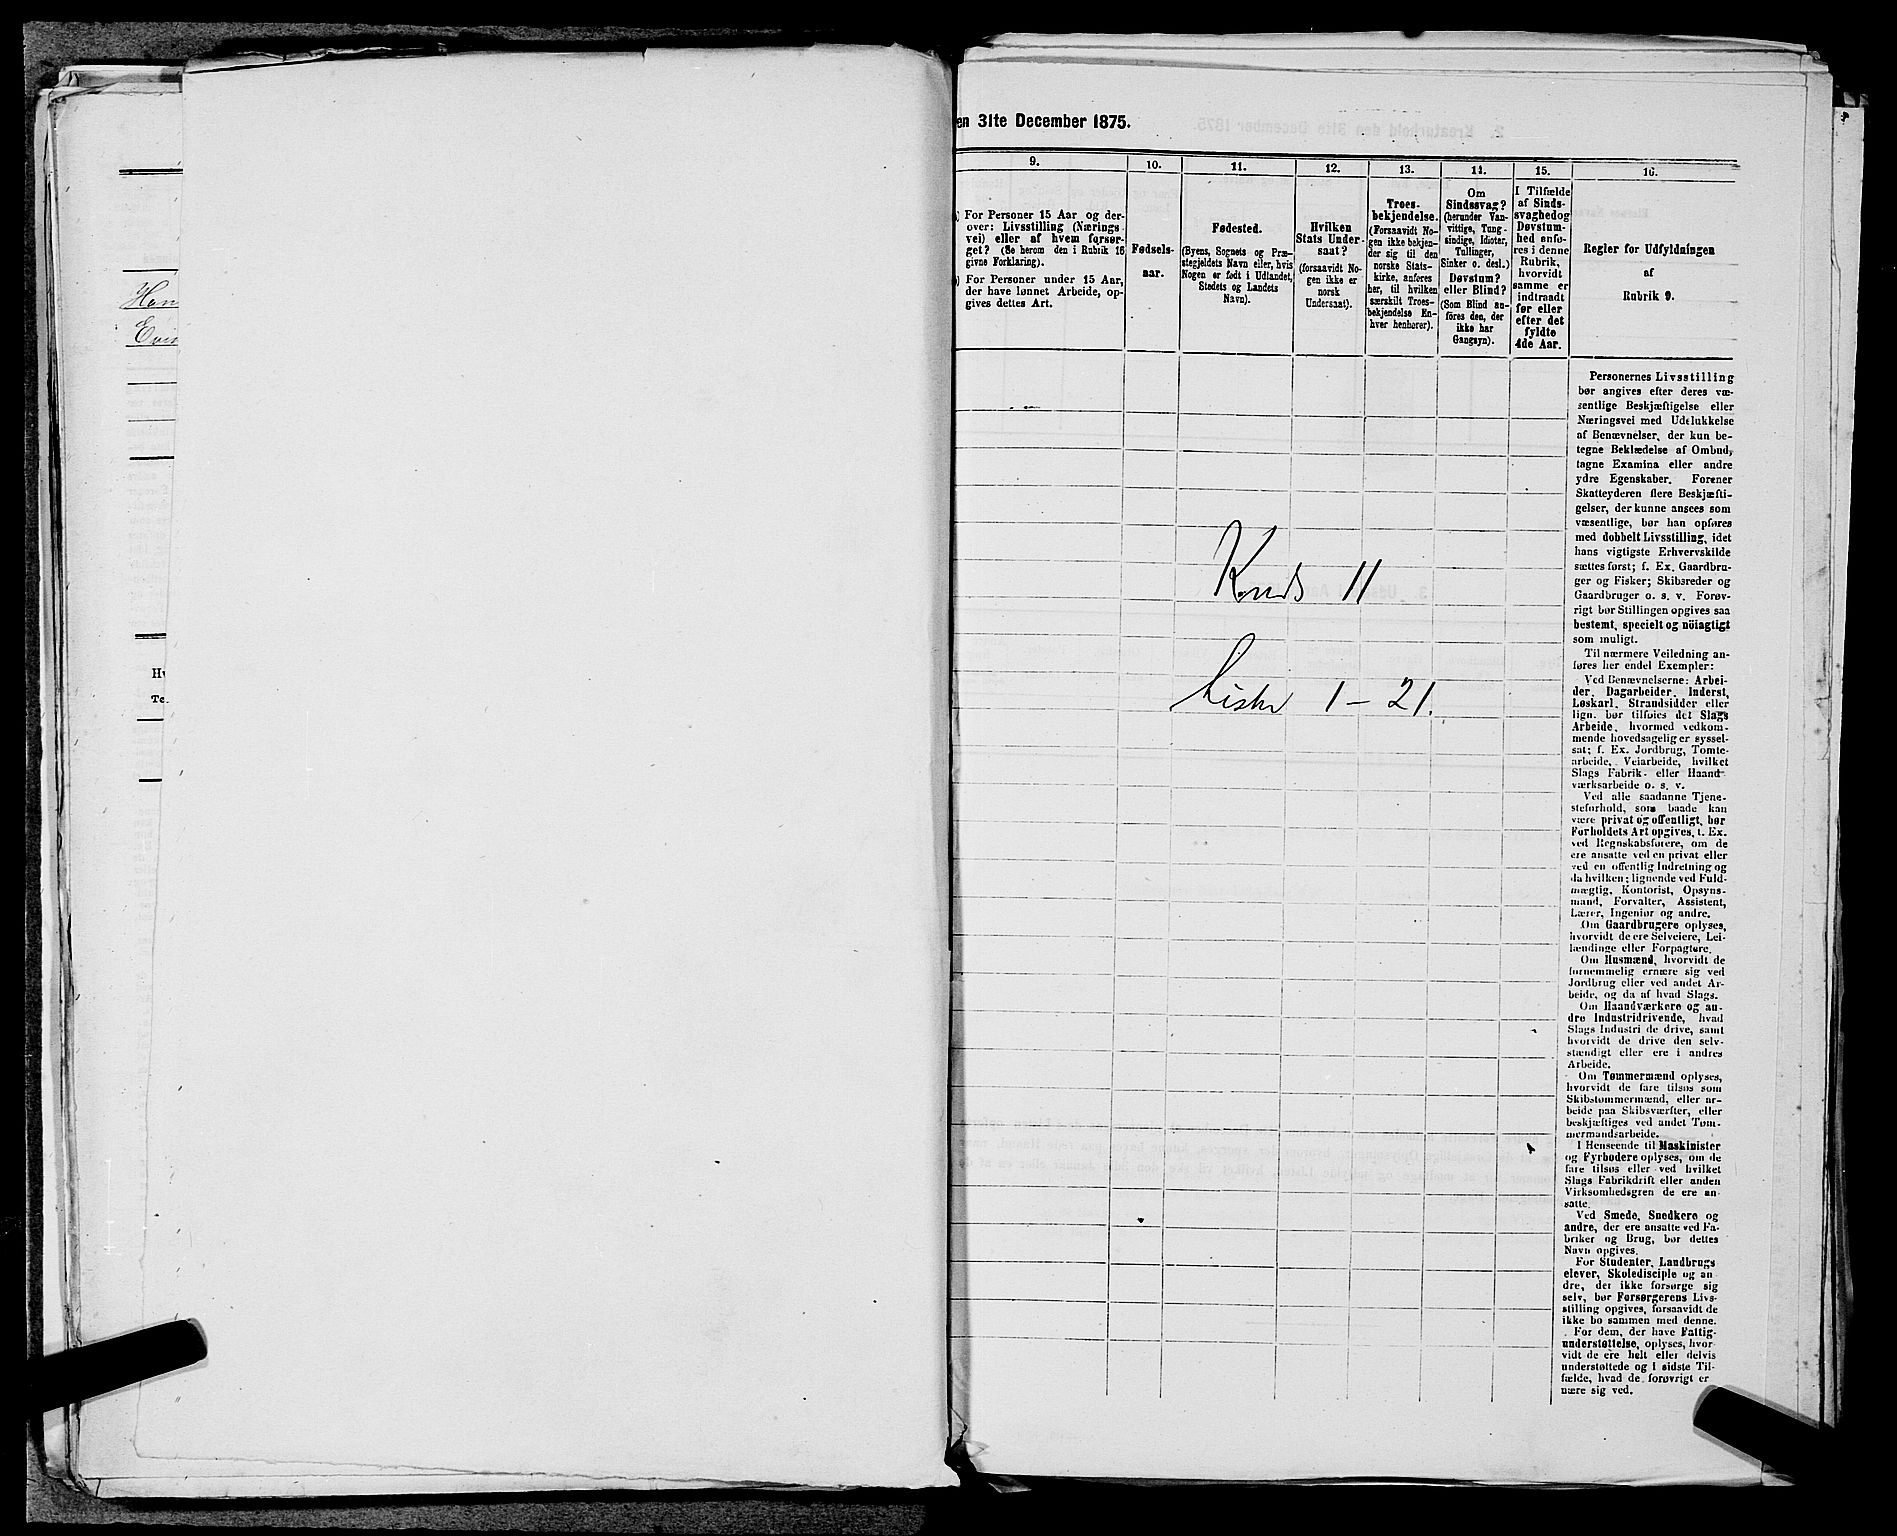 Han
Evin
Hv
Te
en 31te December 1875.
9. 10. 11. 12. 13. 14. 15. 16.
For Personer 15 Aar og der-
over: Livsstilling (Nærings
vei) eller af hvem forsør-
get? (Se herom den i Rubrik 16
givne Forklaring).
For Personer under 15 Aar,
der have lønnet Arbeide, op-
gives dettes Art.
Fødsels-
aar.
Fødested.
(Byens, Sognets og Præ-
stegjeldets Navn eller, hvis
Nogen er født i Udlandet,
Stedets og Landets
Navn).
Hvilken
Stats Under-
saat?
(forsaavidt No-
gen ikke er
norsk
Undersaat).
Troes-
bekjendelse.
(Forsaavidt No-
gen ikke bekjen-
der sig til den
norske Stats-
kirke, anføres
her, til hvilken
særskilt Troes-
bekjendelse En-
hver henhører).
Om
Sindssvag?
(herunder Van-
vittige, Tung-
sindige, Idioter,
Tullinger,
Sinker o. desl.)
Døvstum?
eller Blind?
(Som Blind an-
føres den, der
ikke har
Gangsyn).
I Tilfælde
af Sinds-
svaghedog
Døvstum-
hed anfø-
res i denne
Rubrik,
hvorvidt
samme er
indtraadt
før eller
efter det
fyldte
4de Aar.
Regler for Udfyldningen
af
Rubrik 9.
Kreds 11
Lister 1 - 21.
Personernes Livsstilling
bør angives efter deres væ-
sentlige Beskjæftigelse eller
Næringsvei med Udelukkelse
af Benævnelser, der kun be-
tegne Beklædelse af Ombud,
tagne Examina eller andre
ydre Egenskaber. Forener
Skatteyderen flere Beskjæfti-
gelser, der kunne ansees som
væsentlige, bør han opføres
med dobbelt Livsstilling, idet
hans vigtigste Erhvervskilde
sættes først; f. Ex. Gaardbru-
ger og Fisker; Skibsreder og
Gaardbruger o. s. v. Forøv-
rigt bør Stillingen opgives saa
bestemt, specielt og nöiagtigt
som muligt.
Til nærmere Veiledning an-
føres her endel Exempler:
Ved Benævnelserne: Arbei-
der, Dagarbeider, Inderst,
Løskarl, Strandsidder eller
lign. bør tilføies det Slags
Arbeide, hvormed vedkom-
mende hovedsagelig er syssel-
sat; f. Ex. Jordbrug, Tomte-
arbeide, Veiarbeide, hvilket
Slags Fabrik- eller Haand-
værksarbeide o. s. v.
Ved alle saadanne Tjene-
steforhold, som baade kan
være privat og offentligt, bør
Forholdets Art opgives, f. Ex.
ved Regnskabsførere, om de
ere ansatte ved en privat eller
ved en offentlig Indretning og
da hvilken; lignende ved Fuld-
mægtig, Kontorist, Opsyns-
mand, Forvalter, Assistent,
Lærer, Ingeniør og andre.
Om Gaardbrugere oplyses,
hvorvidt de ere Selveiere, Lei-
lændinge eller Forpagtere.
Om Husmænd, hvorvidt de
fornemmelig ernære sig ved
Jordbrug eller ved andet Ar-
beide, og da af hvad Slags.
Om Haandværkere og an-
dre Industridrivende, hvad
Slags Industri de drive, samt
hvorvidt de drive den selv-
stændigt eller ere i andres
Arbeide.
Om Tømmermænd oplyses,
hvorvidt de fare tilsøs som
Skibstømmermænd, eller ar-
beide paa Skibsværfter, eller
beskjæftiges ved andet Tøm-
mermandsarbeide.
I Henseende til Maskinister
og Fyrbødere oplyses, om de
fare tilsøs eller ved hvilket
Slags Fabrikdrift eller anden
Virksomhedsgren de ere an-
satte.
Ved Smede, Snedkere og
andre, der ere ansatte ved Fa-
briker og Brug, bør dettes
Navn opgives.
For Studenter, Landbrugs
elever, Skoledisciple og an-
dre, der ikke forsørge sig
selv, bør Forsørgerens Livs-
stilling opgives, forsaavidt de
ikke bo sammen med denne.
For dem, der have Fattig-
understøttelse, oplyses, hvor-
vidt de ere helt eller delvis
understøttede og i sidste Til-
fælde, hvad de forøvrigt er
nære sig ved.